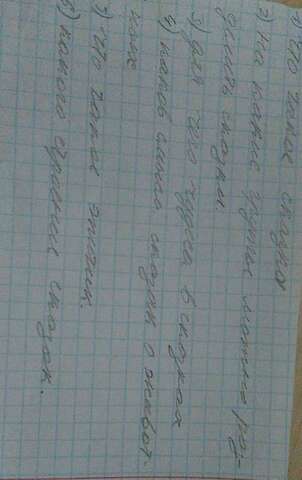 1) Что такое сказка
2) На какие группы можно раз-
делить сказки.
3) Для чего чудеса в сказках
4) каков смысл сказки о живот-
ных
5) Что такое зачин.
6) какого строение сказок.